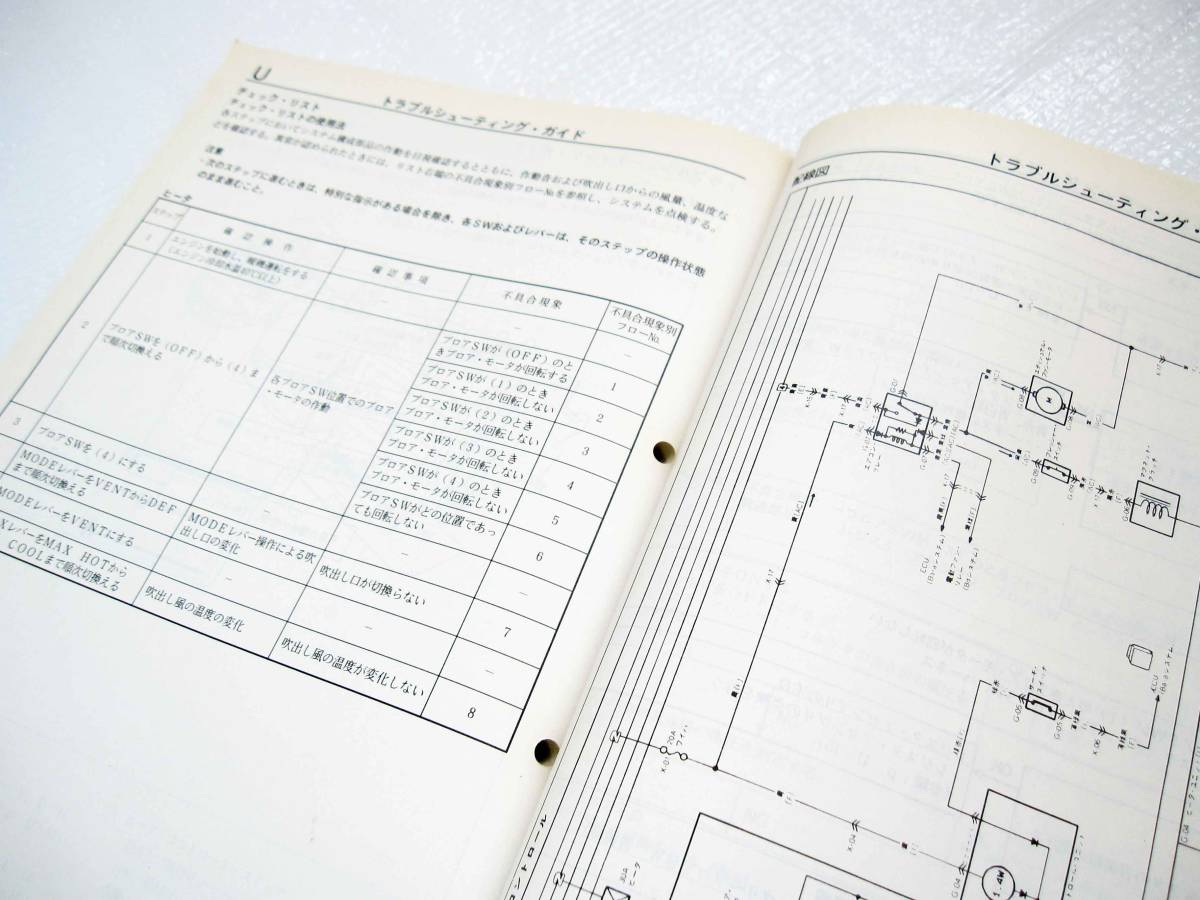 U
トラブルシューティング・ガイド
チェック・リスト
チェック・リストの使用法
各ステップにおいてシステム構成部品の作動を目視確認するとともに、作動音および吹出し口からの風量、温度な
どを確認する。異常が認められたときには、リスト右端の不具合現象別フロー№を参照し、システムを点検する。
注意
・次のステップに進むときは、特別な指示がある場合を除き、各SWおよびレバーは、そのステップの操作状態
のまま進むこと。
ヒータ
ステップ
確認操作
確認事項
不具合現象
不具合現象別
フロー№
1
エンジンを始動し、暖機運転をする
(エンジン冷却水温80℃以上)
－
－
－
2
ブロアSWを(OFF)から(4)ま
で順次切換える
各ブロアSW位置でのブロア
・モータの作動
ブロアSWが(OFF)のと
きブロア・モータが回転する
1
ブロアSWが(1)のとき
ブロア・モータが回転しない
2
ブロアSWが(2)のとき
ブロア・モータが回転しない
3
ブロアSWが(3)のとき
ブロア・モータが回転しない
4
ブロアSWが(4)のとき
ブロア・モータが回転しない
5
ブロアSWがどの位置であっ
ても回転しない
6
3
ブロアSWを(4)にする
－
－
－
MODEレバーをVENTからDEF
まで順次切換える
MODEレバー操作による吹
出し口の変化
吹出し口が切換らない
7
MODEレバーをVENTにする
－
－
－
XレバーをMAX HOTから
COOLまで順次切換える
吹出し風の温度の変化
吹出し風の温度が変化しない
8
トラブルシューティング・
配線図
G-01
エアコン
リレー
M
G-06
マグネット
クラッチ
ECU
(Baシステム)
電動ファン・
リレー
(Baシステム)
X-17
サーモ
スイッチ
G-05
G-05
X-06
ECU
(Baシステム)
20A
X-01
X-04
G-04
1.4W
30A
ヒータ
コントロール